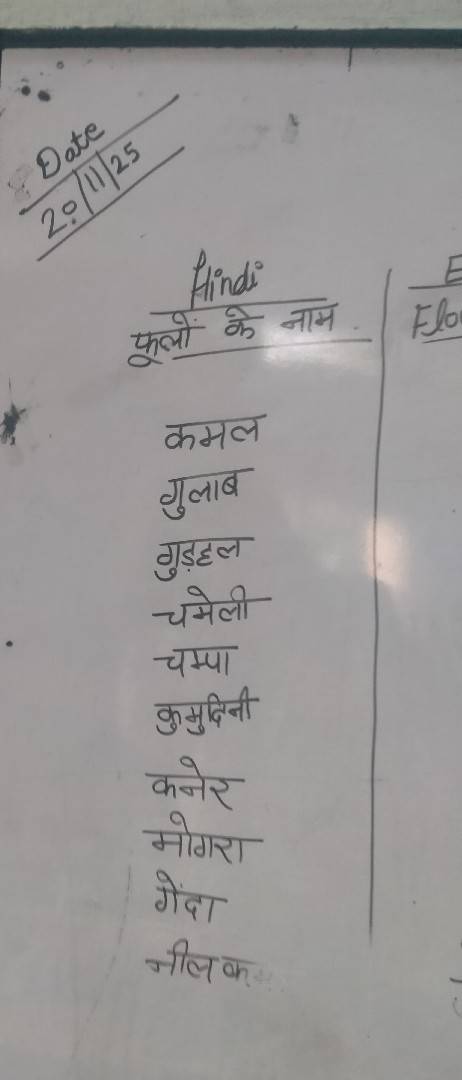 Date
20/11/25
Hindi
फूलों के नाम
कमल
गुलाब
गुड़हल
चमेली
चम्पा
कुमुदिनी
कनेर
मोगरा
गेंदा